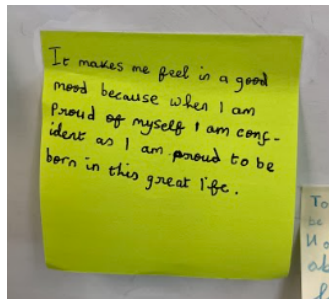 It makes me feel in a good
mood because when I am
proud of myself I am conf-
ident as I am proud to be
born in this great life.
To
be